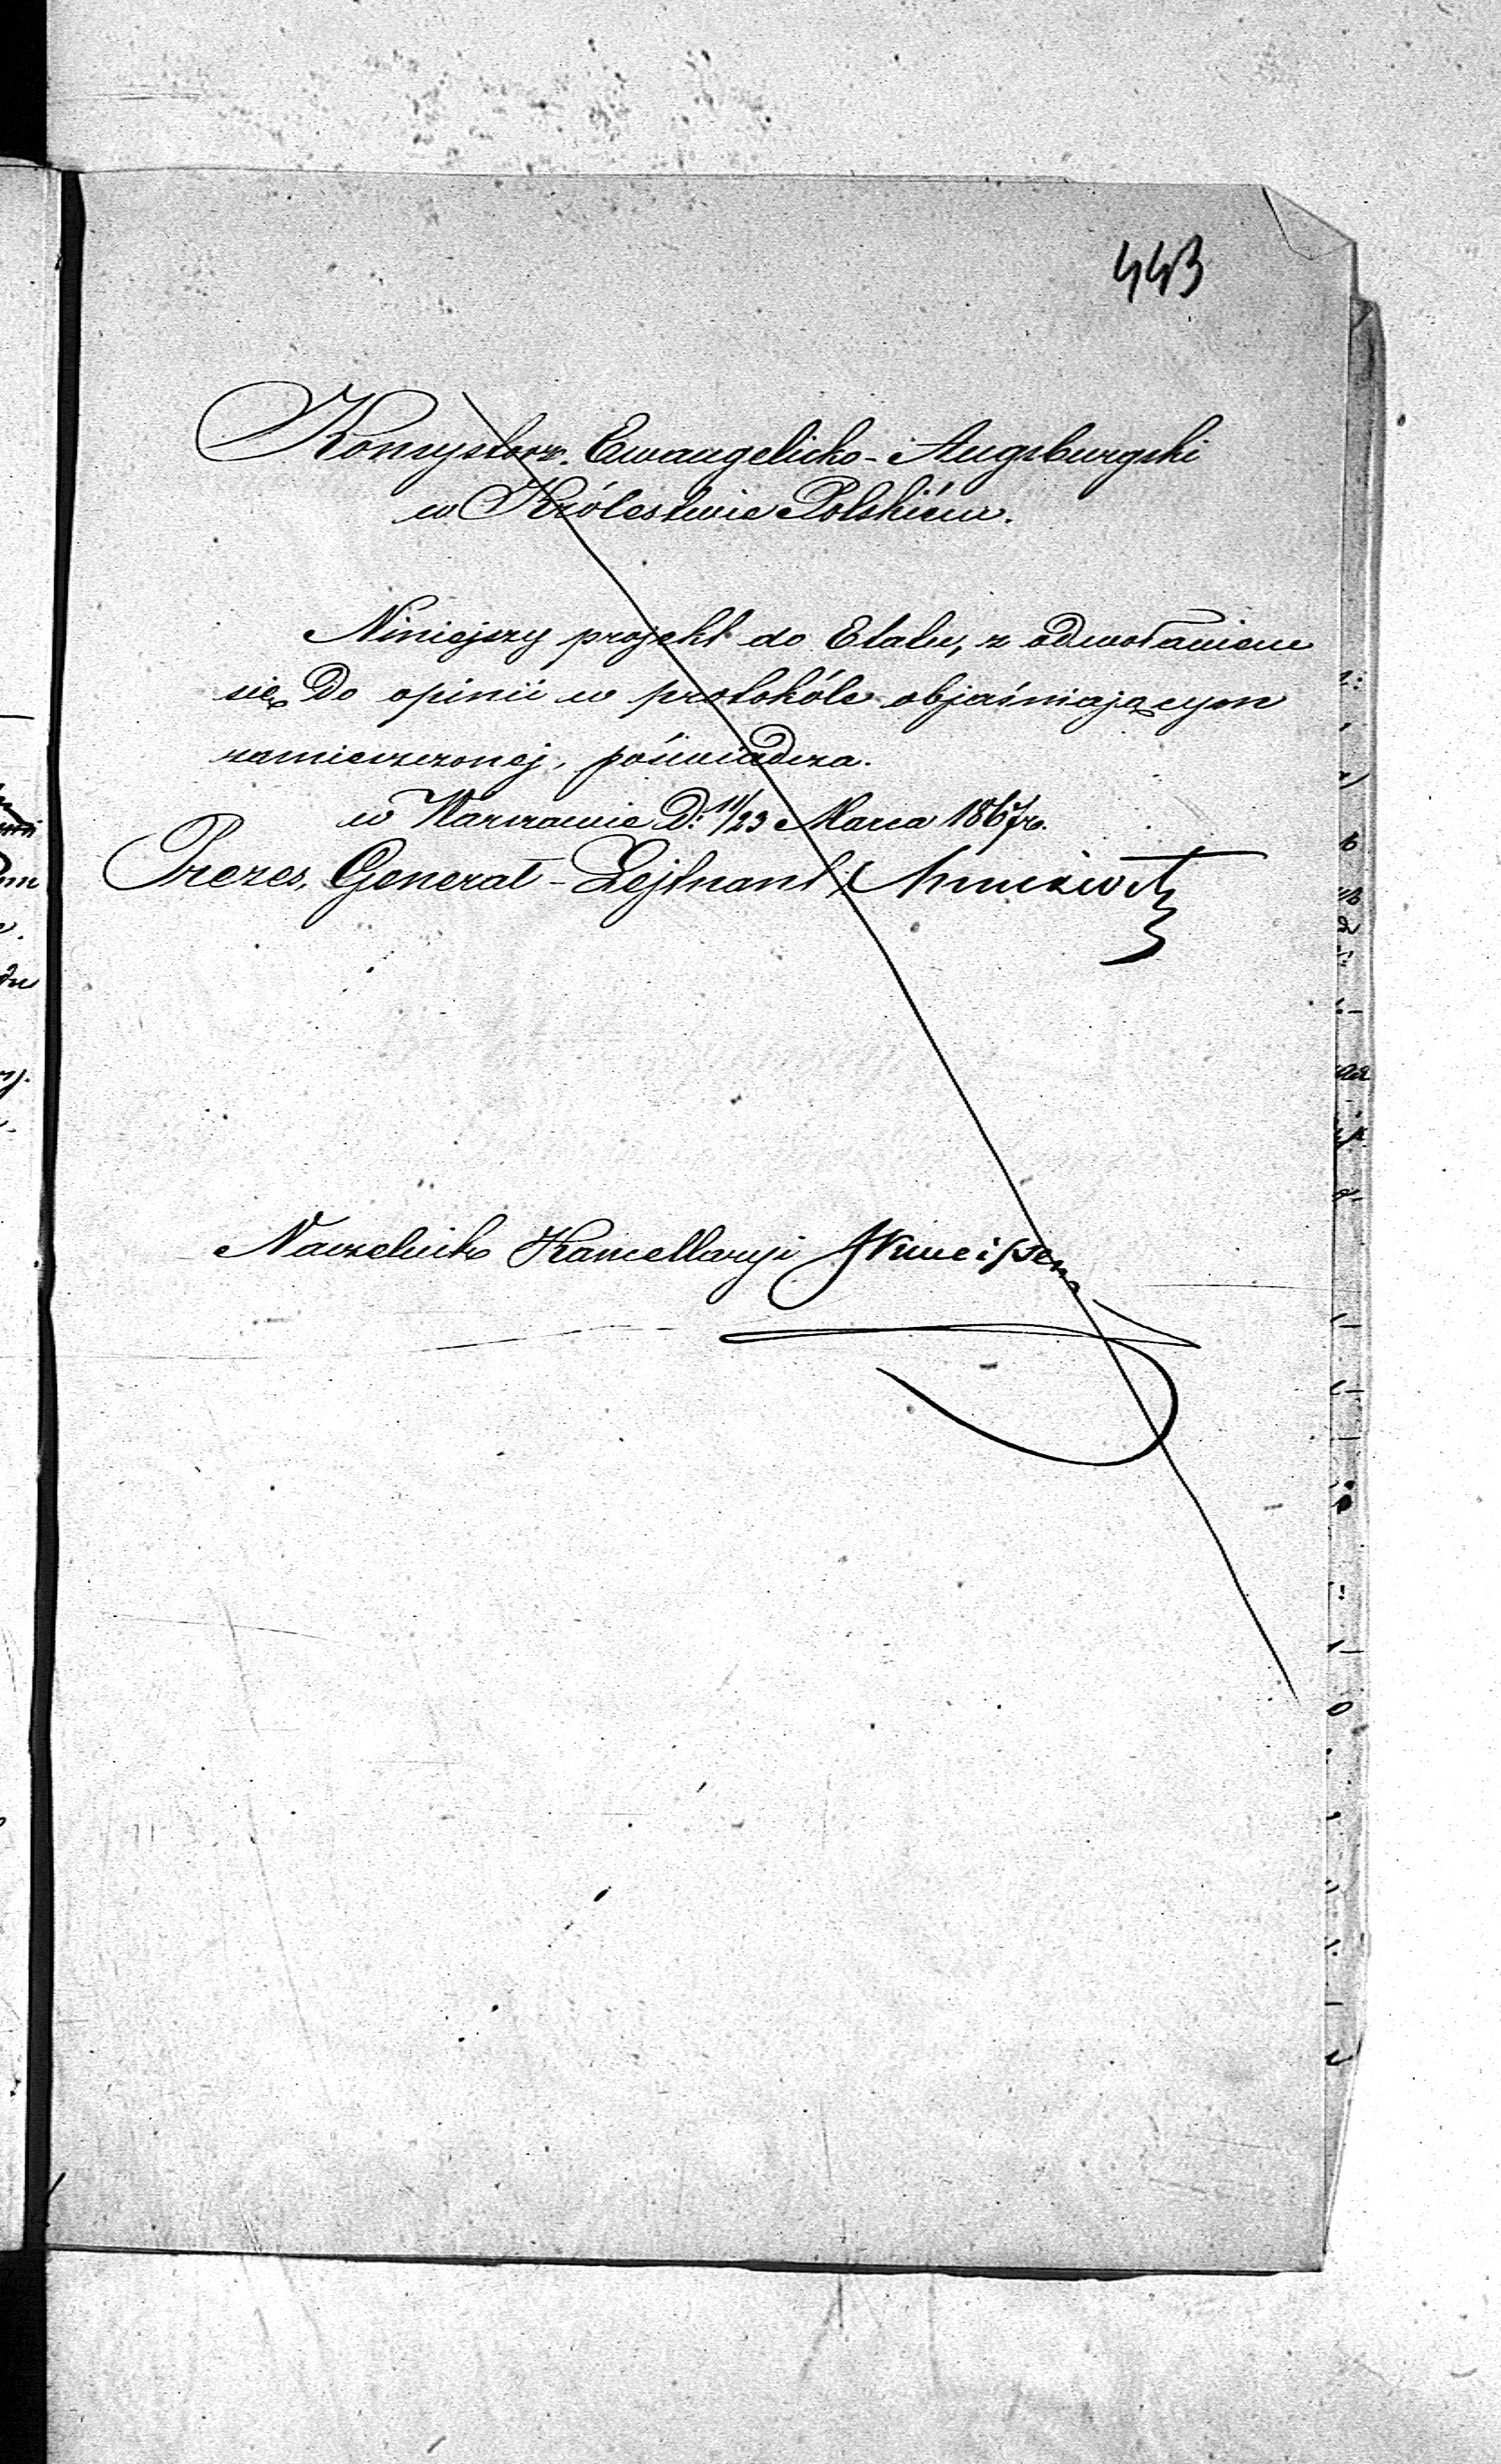 443
Konsystorz Ewangelicko-Augsburgski
w Królestwie Polskiém.
Niniejszy projekt do Etatu, z odwołaniem
się do opinii w protokóle objaśniającym
zamieszczonej, poświadcza.
w Warszawie d: 11/23 Marca 1867 r.
Prezes, Generał-Lejtnant
Naczelnik Kancellaryi